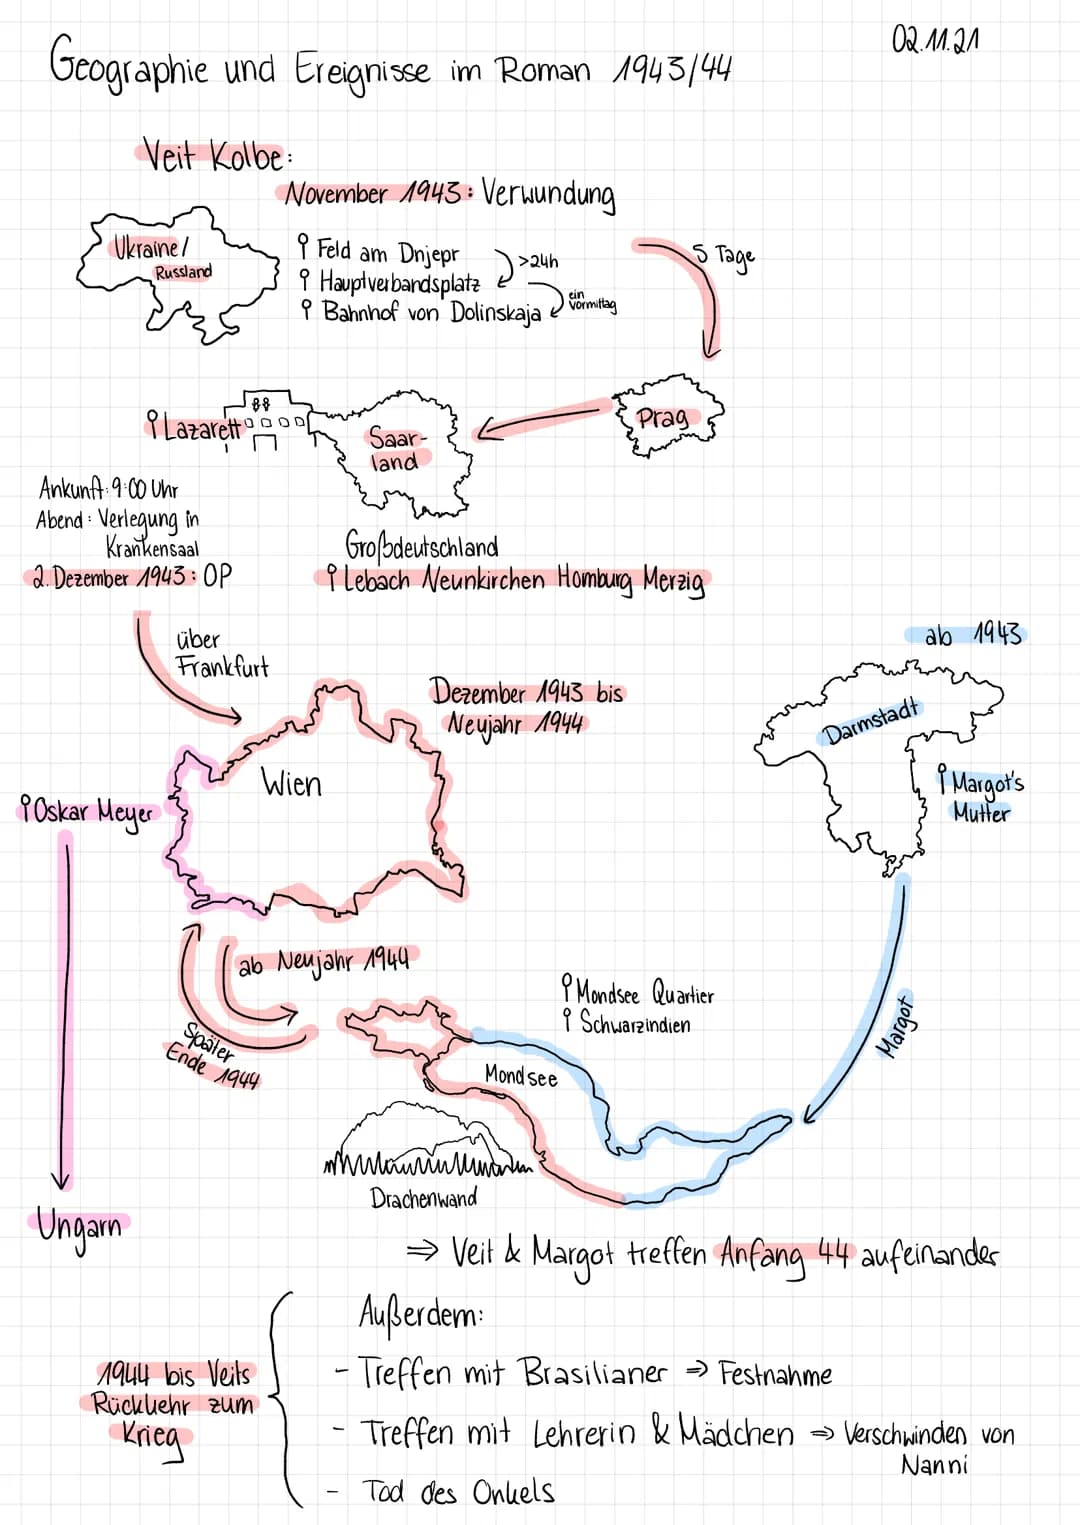 02.11.21
Geographie und Ereignisse im Roman 1943/44
Veit Kolbe:
November 1943: Verwundung
Ukraine/
Russland
Feld am Dnjepr
Hauptverbandsplatz
Bahnhof von Dolinskaja
>24h
ein
Vormittag
5 Tage
Prag
Lazarett
Saar-
land
Ankunft: 9:00 Uhr
Abend: Verlegung in
Krankensaal
2. Dezember 1943: OP
Großdeutschland
Lebach Neunkirchen Homburg Merzig
über
Frankfurt
Dezember 1943 bis
Neujahr 1944
Wien
ab 1943
Darmstadt
Margot's
Mutter
Oskar Meyer
ab Neujahr 1944
Später
Ende 1944
Mondsee Quartier
Schwarzindien
Margot
Mondsee
Drachenwand
Ungarn
⇒ Veit & Margot treffen Anfang 44 aufeinander
Außerdem:
1944 bis Veits
Rückkehr zum
Krieg
- Treffen mit Brasilianer ⇒ Festnahme
- Treffen mit Lehrerin & Mädchen ⇒ Verschwinden von
Nanni
- Tod des Onkels